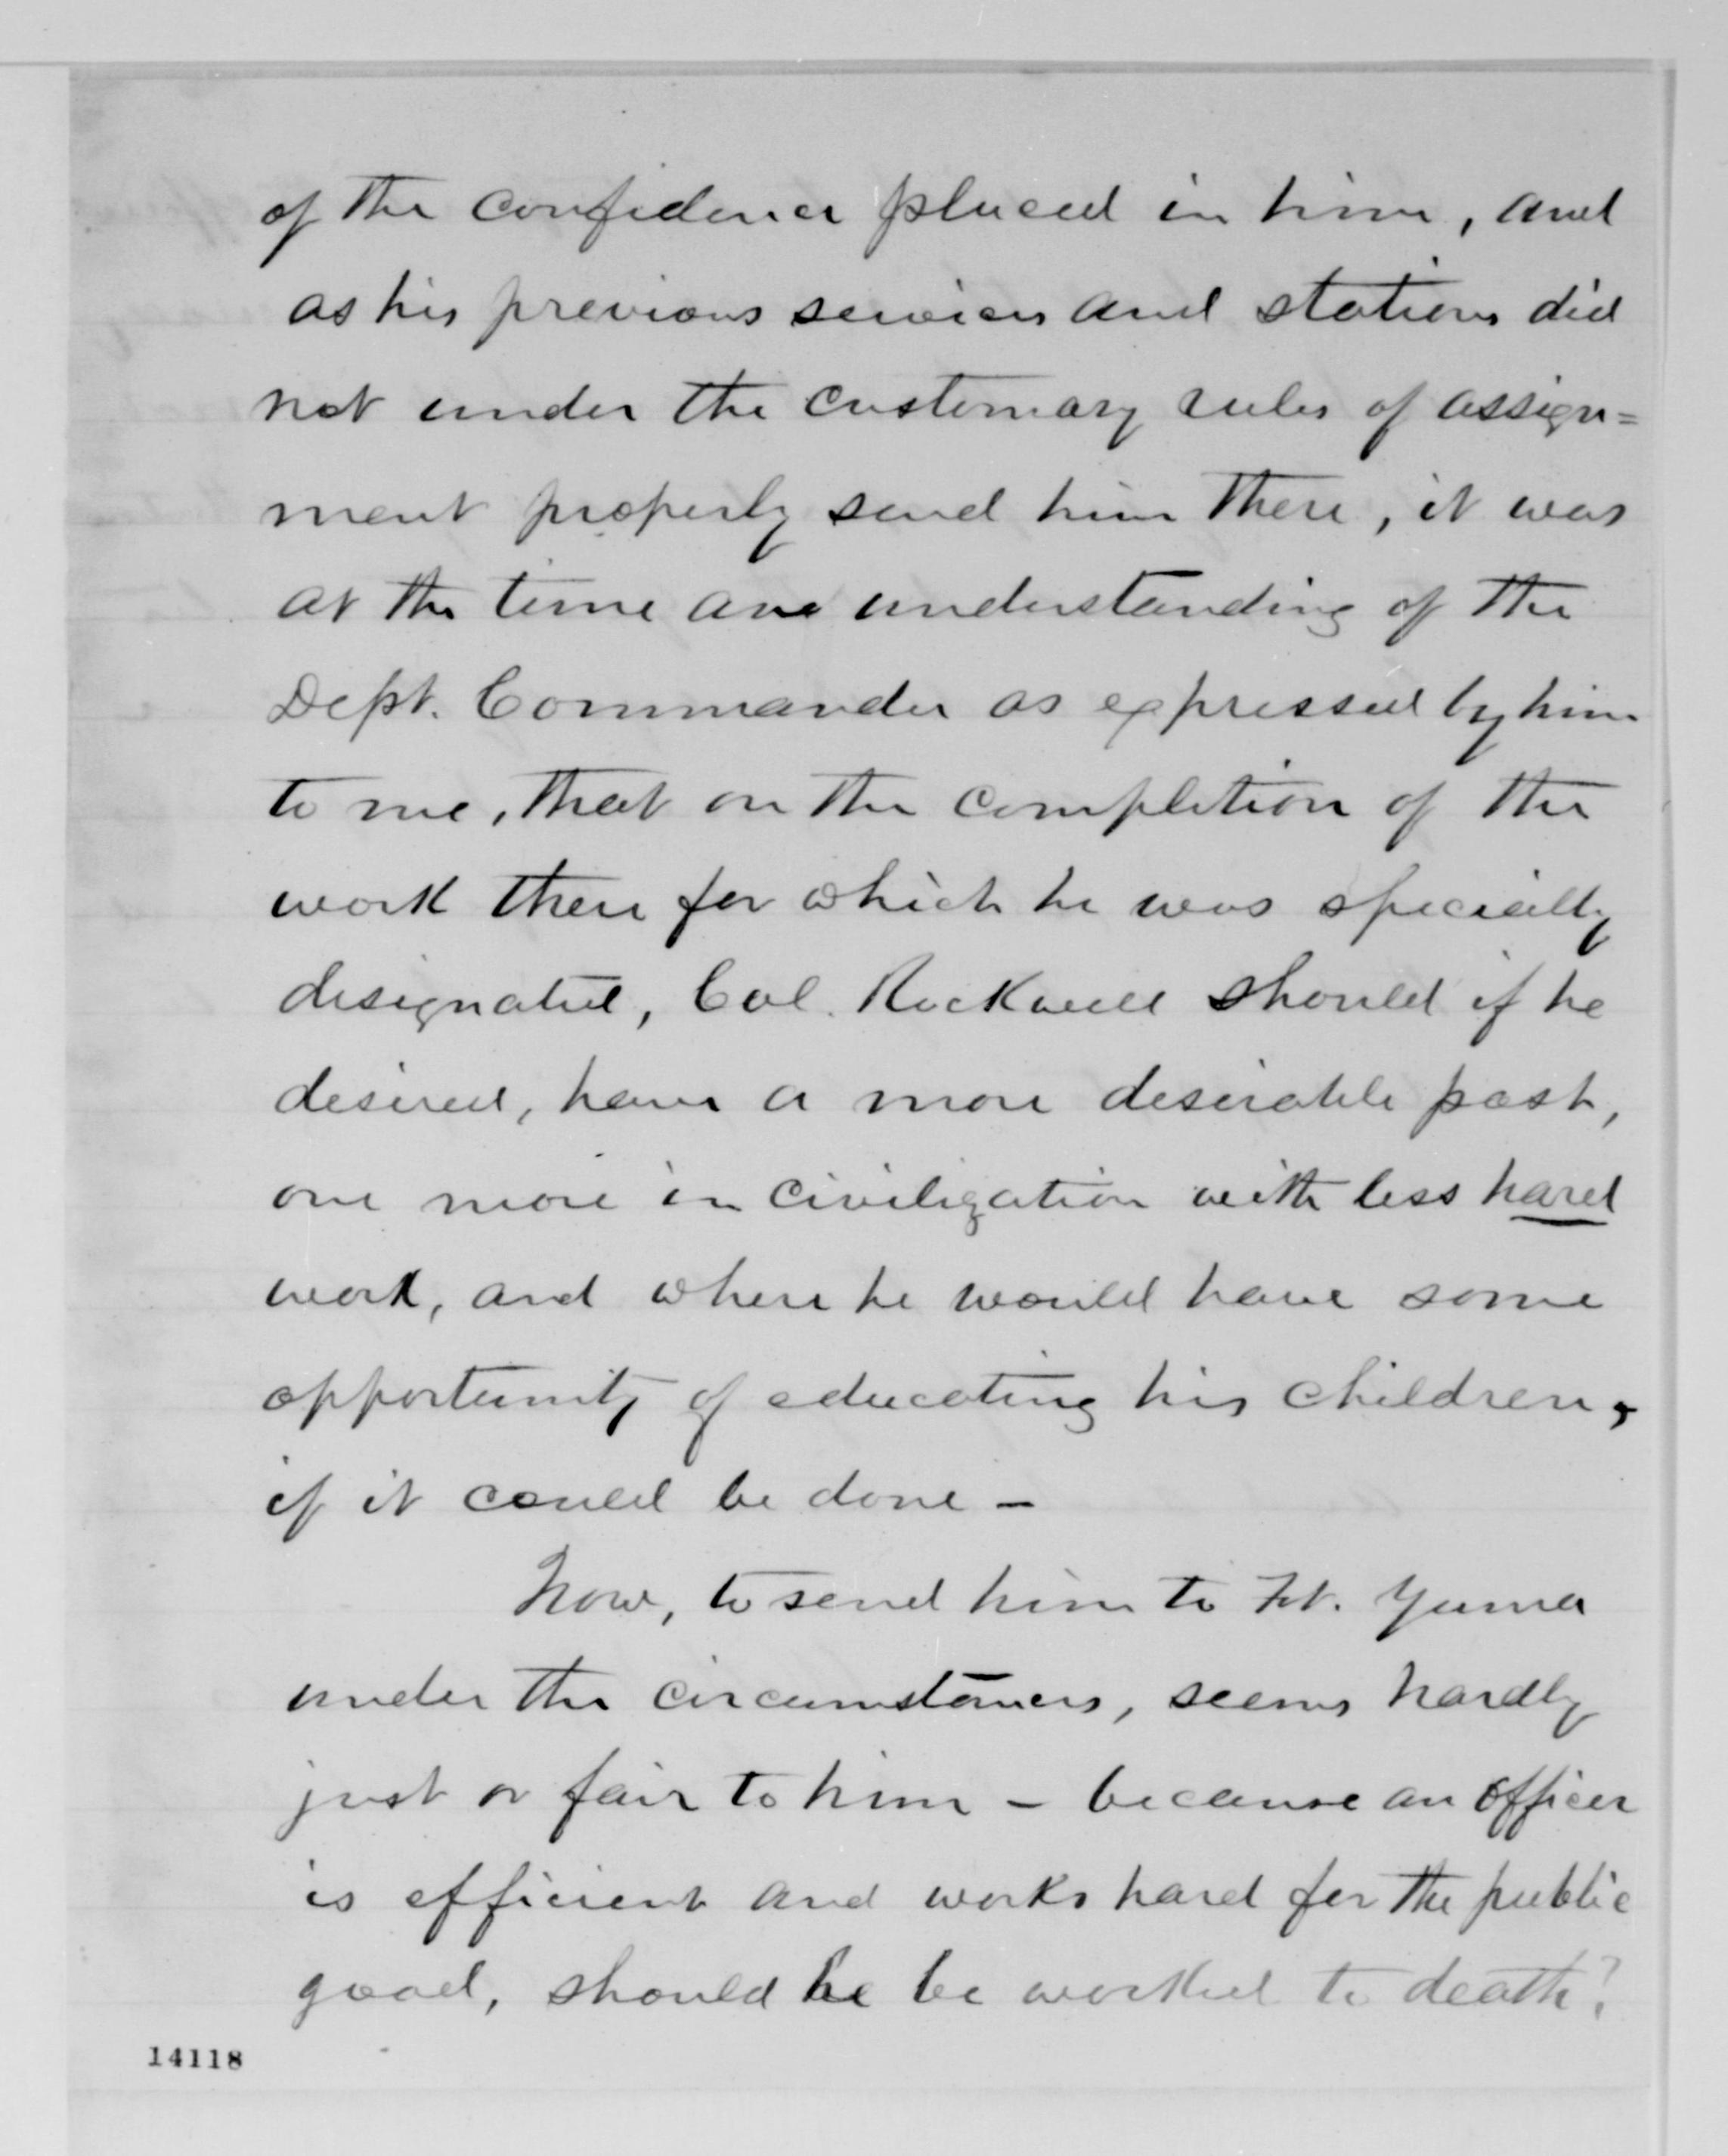 of the confidence placed in him, and
as his previous services and stations did
not under the customary rules of assign=
ment properly send him there, it was
at the time an understanding of the
Dept. Commander as expressed by him
to me, that on the completion of the
work there for which he was specially
designated, Col. Rockwell should if he
desired, have a more desirable post,
one more in civilization with less hard
work, and where he would have some
opportunity of educating his children,
if it could be done –
Now, to send him to Ft. Yuma
under the circumstances, seems hardly
just or fair to him – because an officer
is efficient and works hard for the public
good, should he be worked to death?
14118